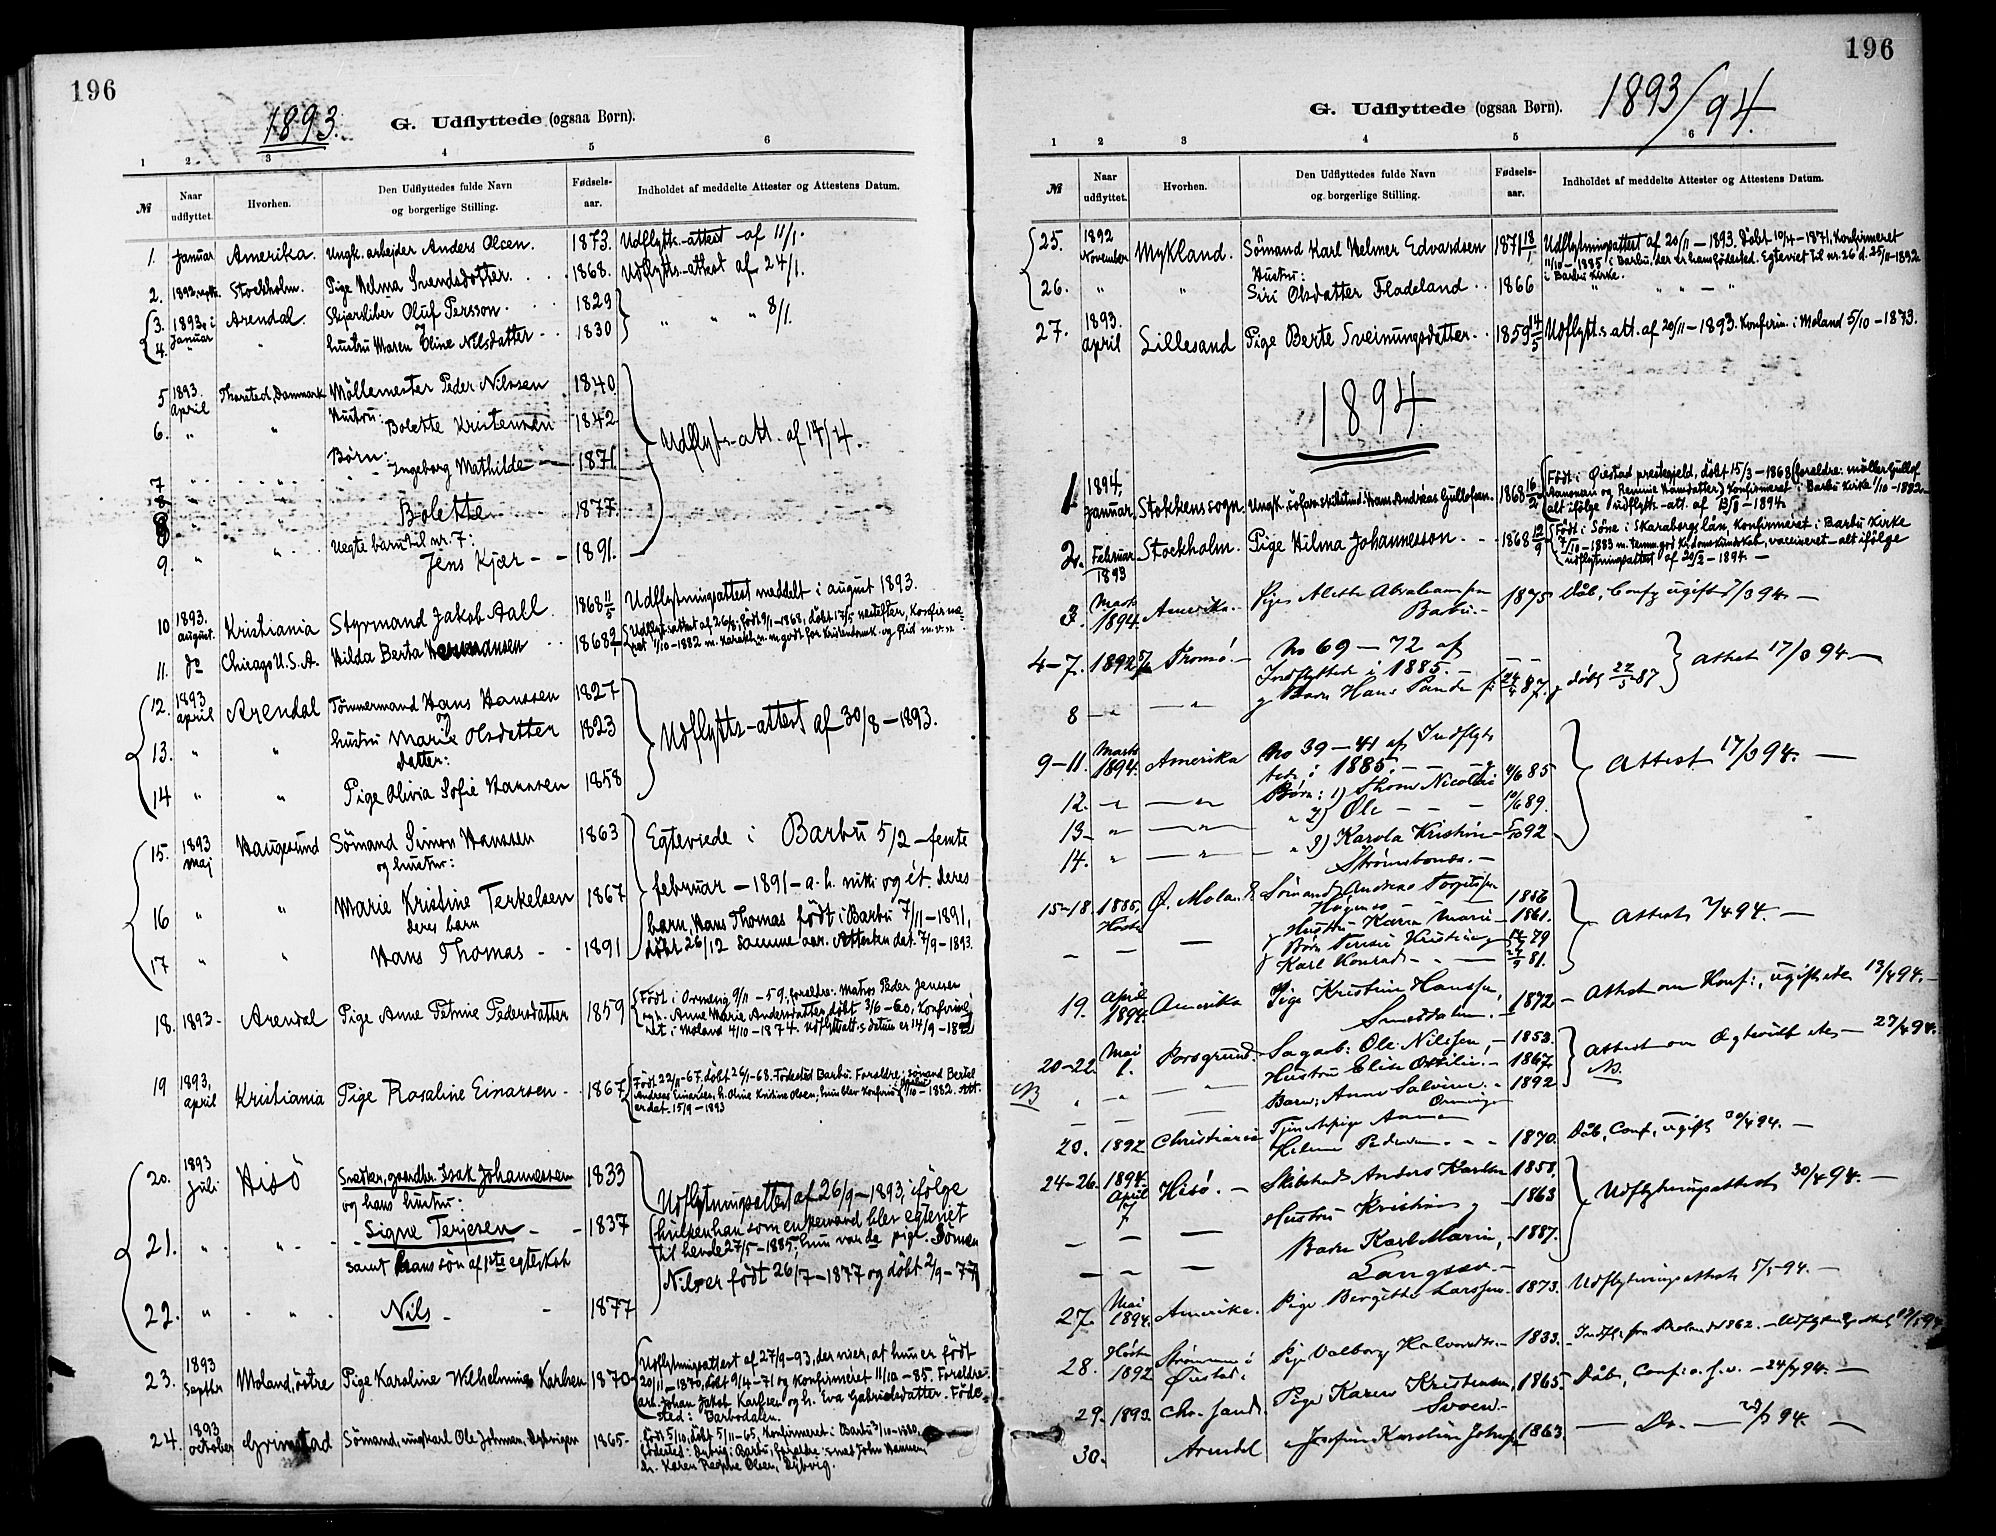 196
1893.
G. Udflyttede (ogsaa Børn).
1 2 3 4 5 6
№ Naar udflyttet. Hvorhen. Den Udflyttedes fulde Navn og borgerlige Stilling. Fødsels-aar. Indholdet af meddelte Attester og Attestens Datum.
1. Januar Amerika. Ungk. arbejder Anders Olsen. 1873. Udflytts.-attest af 11/1.
2. 1892 Stockholm. Pige Helma Svendsdotter. 1868. Udflytts-attest af 24/1.
3. 1893 i Januar Arendal. Oluf Persson. 1829 } " " " 8/1.
4. " hustru Maren Eline Nilsdatter 1830
5 1893. April Thorsted, Danmark Möllemester Peder Nilssen 1840 } Udflyts-att. af 14/4.
6. " " Hustru: Bolette Kristensen 1842
7 " " Börn: Ingeborg Mathilde 1871
8 " " Bolette 1877
9. " " Uegte barn til nr. 7: Jens Kjær 1891.
10 1893. august. Kristiania Styrmand Jakob Aall 1868 11/5 Udflytningsattest meddelt i august 1893.
11. do Chicago U.S.A. Hilda Berta Hermansen 1868
12. 1893 april Arendal Tömmermand Hans Hanssen 1827 } Udflytts-attest af 30/8 - 1893.
13. " " hustru Marie Olsdatter 1823
datter:
14 " " Pige Olivia Sofie Hanssen 1858
15. 1893 maj Haugesund Sömand Simon Hanssen 1863 Egteviede i Barbu 5/2 - femte
og hustru:
16 " " Marie Kristine Terkelsen 1867 februar - 1891 - a. h. nitti og ét. deres
deres barn barn, Hans Thomas født i Barbu 7/11 - 1891,
17 " " Hans Thomas 1891 döbt 26/12 samme aar. Attesten dat. 7/9 - 1893.
18. 1893 - Arendal Pige Anne Petrine Pedersdatter 1859 Født i 9/11 - 59, foreldre: Matros Peder Jensen
og h. Anne Marie Andersdatter, døbt 3/6 - 60, Konfirme-
ret i Moland 4/10 - 1874. Udflyttatt.s datum er 14/9 - 1893
19 1893, april Kristiania Pige Rosaline Einarsen 1867 Født 22/11 - 67. døbt 26/1 - 68. Fødested Barbu. Foreldre: sömand Bertel
Andreas Einarsen, h. Oline Kristine Olsen; hun blev konfirm. 1/10 - 1882. Att.
er dat. 15/9 - 1893
20. 1893 Juli Hisö Isak Johannessen 1833 Udflytningsattest af 26/9 - 1893, ifölge
og hans hustru: hvilken han som enkemand blev egteviet
21. " " Signe Terjesen 1837 til hende 27/5 - 1885; hun var da pige. Sönen
samt hans sön af 1ste egteskab Nils er født 26/7 - 1877 og döbt 2/9 - 77
22. " " Nils 1877
23. 1893 Septbr Moland, östre Pige Karoline Wilhelmine Karlsen 1870 Udflytningsattest af 27/9 - 93, der viser, at hun er født
20/11 - 1870, døbt 9/4 - 71 og konfirmeret 11/10 - 85. Foreldre:
arb. Johan Jakob Karlsen og h. Eva Gabrielsdatter. Föde-
sted: Barbodalen.
24. 1893 october Grimstad Sömand, ungkarl Ole Johnsen, 1865 Født 5/10, døbt 5/11 - 65. Konfirmeret i Barbu 3/10 - 1880,
h. Karen Olsen, Dybvig.
196
G. Udflyttede (ogsaa Børn). 1893/94.
1 2 3 4 5 6
№ Naar udflyttet. Hvorhen. Den Udflyttedes fulde Navn og borgerlige Stilling. Fødsels-aar. Indholdet af meddelte Attester og Attestens Datum.
25. 1892 November Mykland. Sömand Karl Helmer Edvardsen 1871 18/1 Udflytningsattest af 20/11 - 1893. Døbt 10/4 - 1871. Konfirmeret
11/10 - 1885 i Barbu, der er hans födested. Egteviet til nr. 26 d. 25/11 - 1892
i Barbu Kirke.
26. " " Hustru: Siri Olsdatter Fladeland 1866 " " " "
27. 1893. april Lillesand Pige Berte Sveinungsdatter 1859 14/5 Udflytt.s att. af 20/11 - 1893. Konfirm. i Moland 5/10 - 1873.
1894
1 1894, Januar Stokkens sogn. Ungk. Hans Andreas Gullofsen 1868 16/2 Født i Øiestad prestegjeld, døbt 15/3 - 1868 (foreldre: möller Gullof
Konfirmeret i Barbu Kirke 1/10 - 1882
alt ifölge udflytts.-att. af
2. Februar 1893 Stockholm. Pige Hilma Johannesson 1868 12/9 Født i Söne i Skaraborgs län, Konfirmeret i Barbu Kirke
7/10 - 1883 m. temm. god Kr.domskundskab, vaccineret - alt ifölge
udflytningsattest af 20/2 - 1894.
3. Marts 1894. Amerika. Pige Alette Abrahamsen Barbu. 1875 Dåb, Conf, ugift 7/3 94.
4-7. 1892 Tromsö. No 69 - 72 af
Indflyttede i 1885.
8 " " og Barn Hans 87, døbt 22/5 87 } Attest 17/3 94.
9-11. Marts 1894. Amerika No 39 - 41 af Indflyt-
tede i 1885. } Attest 17/3 94.
12. " " Børn: 1) Thom Nicolai 4/6 85
13 " " " 2) Ole 10/6 89.
14. " " " 3) Karola Kristine 92
Strömsbones.
15-18. 1885, Høst Ø. Moland Sömand Andreas 1856 } Attest 7/4 94.
Hustru Karen Marie 1861.
Børn Kristine 79
Karl Konrad 81.
19. April 1894 Amerika Pige Kristine Hanssen, 1872 Attest om Konf:, ugift etc 13/4 94.
20-22. Mai 1. Porsgrund. Sagarb: Ole Nilssen, 1853. } Attest om Ægtevidt etc 27/4 94.
NB " " Hustru Elise Ottilie. 1867. NB.
" " Barn: Anne Salvine. 1892
20. 1892 Christiania Tjenestepige Anna
Helene Pedersen 1870. Dåb, Conf, ugift 30/4 94.
24-26. 1894. April Hisö. Anders Karlsen 1858. } Udflytningsattest 30/4 94.
Hustru Kristine 1863
Barn Karl Marin, 1887.
Langsæ.
27. Mai 1894. Amerika. Pige Bergitte Larssen 1873. Udflytningsattest 5/5 94.
28. Høst 1892 Strömmen i Øiestad. Pige Valborg Halvorsdtr. 1833. Indfl: fra Moland 1862.
29. 1893. Chr. sand. Pige Karen Kristensen, 1865. Dåb, Conf: o. s. v. - 94.
30. Arendal Josefine Karoline 1863. Do. 94.